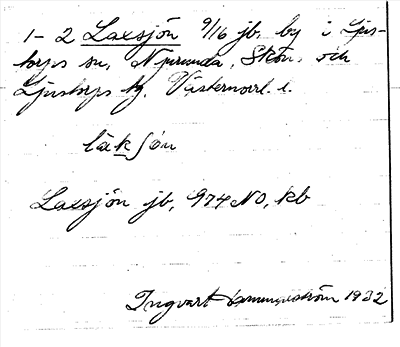 1-2 Laxsjön 9/16 jb, by i Ljus-
torps sn, Njurunda, Skön, och
Ljustorps tg. Västernorrl. l.
läksjön
Laxsjön jb, 974 NO, kb
Ingvart 1932